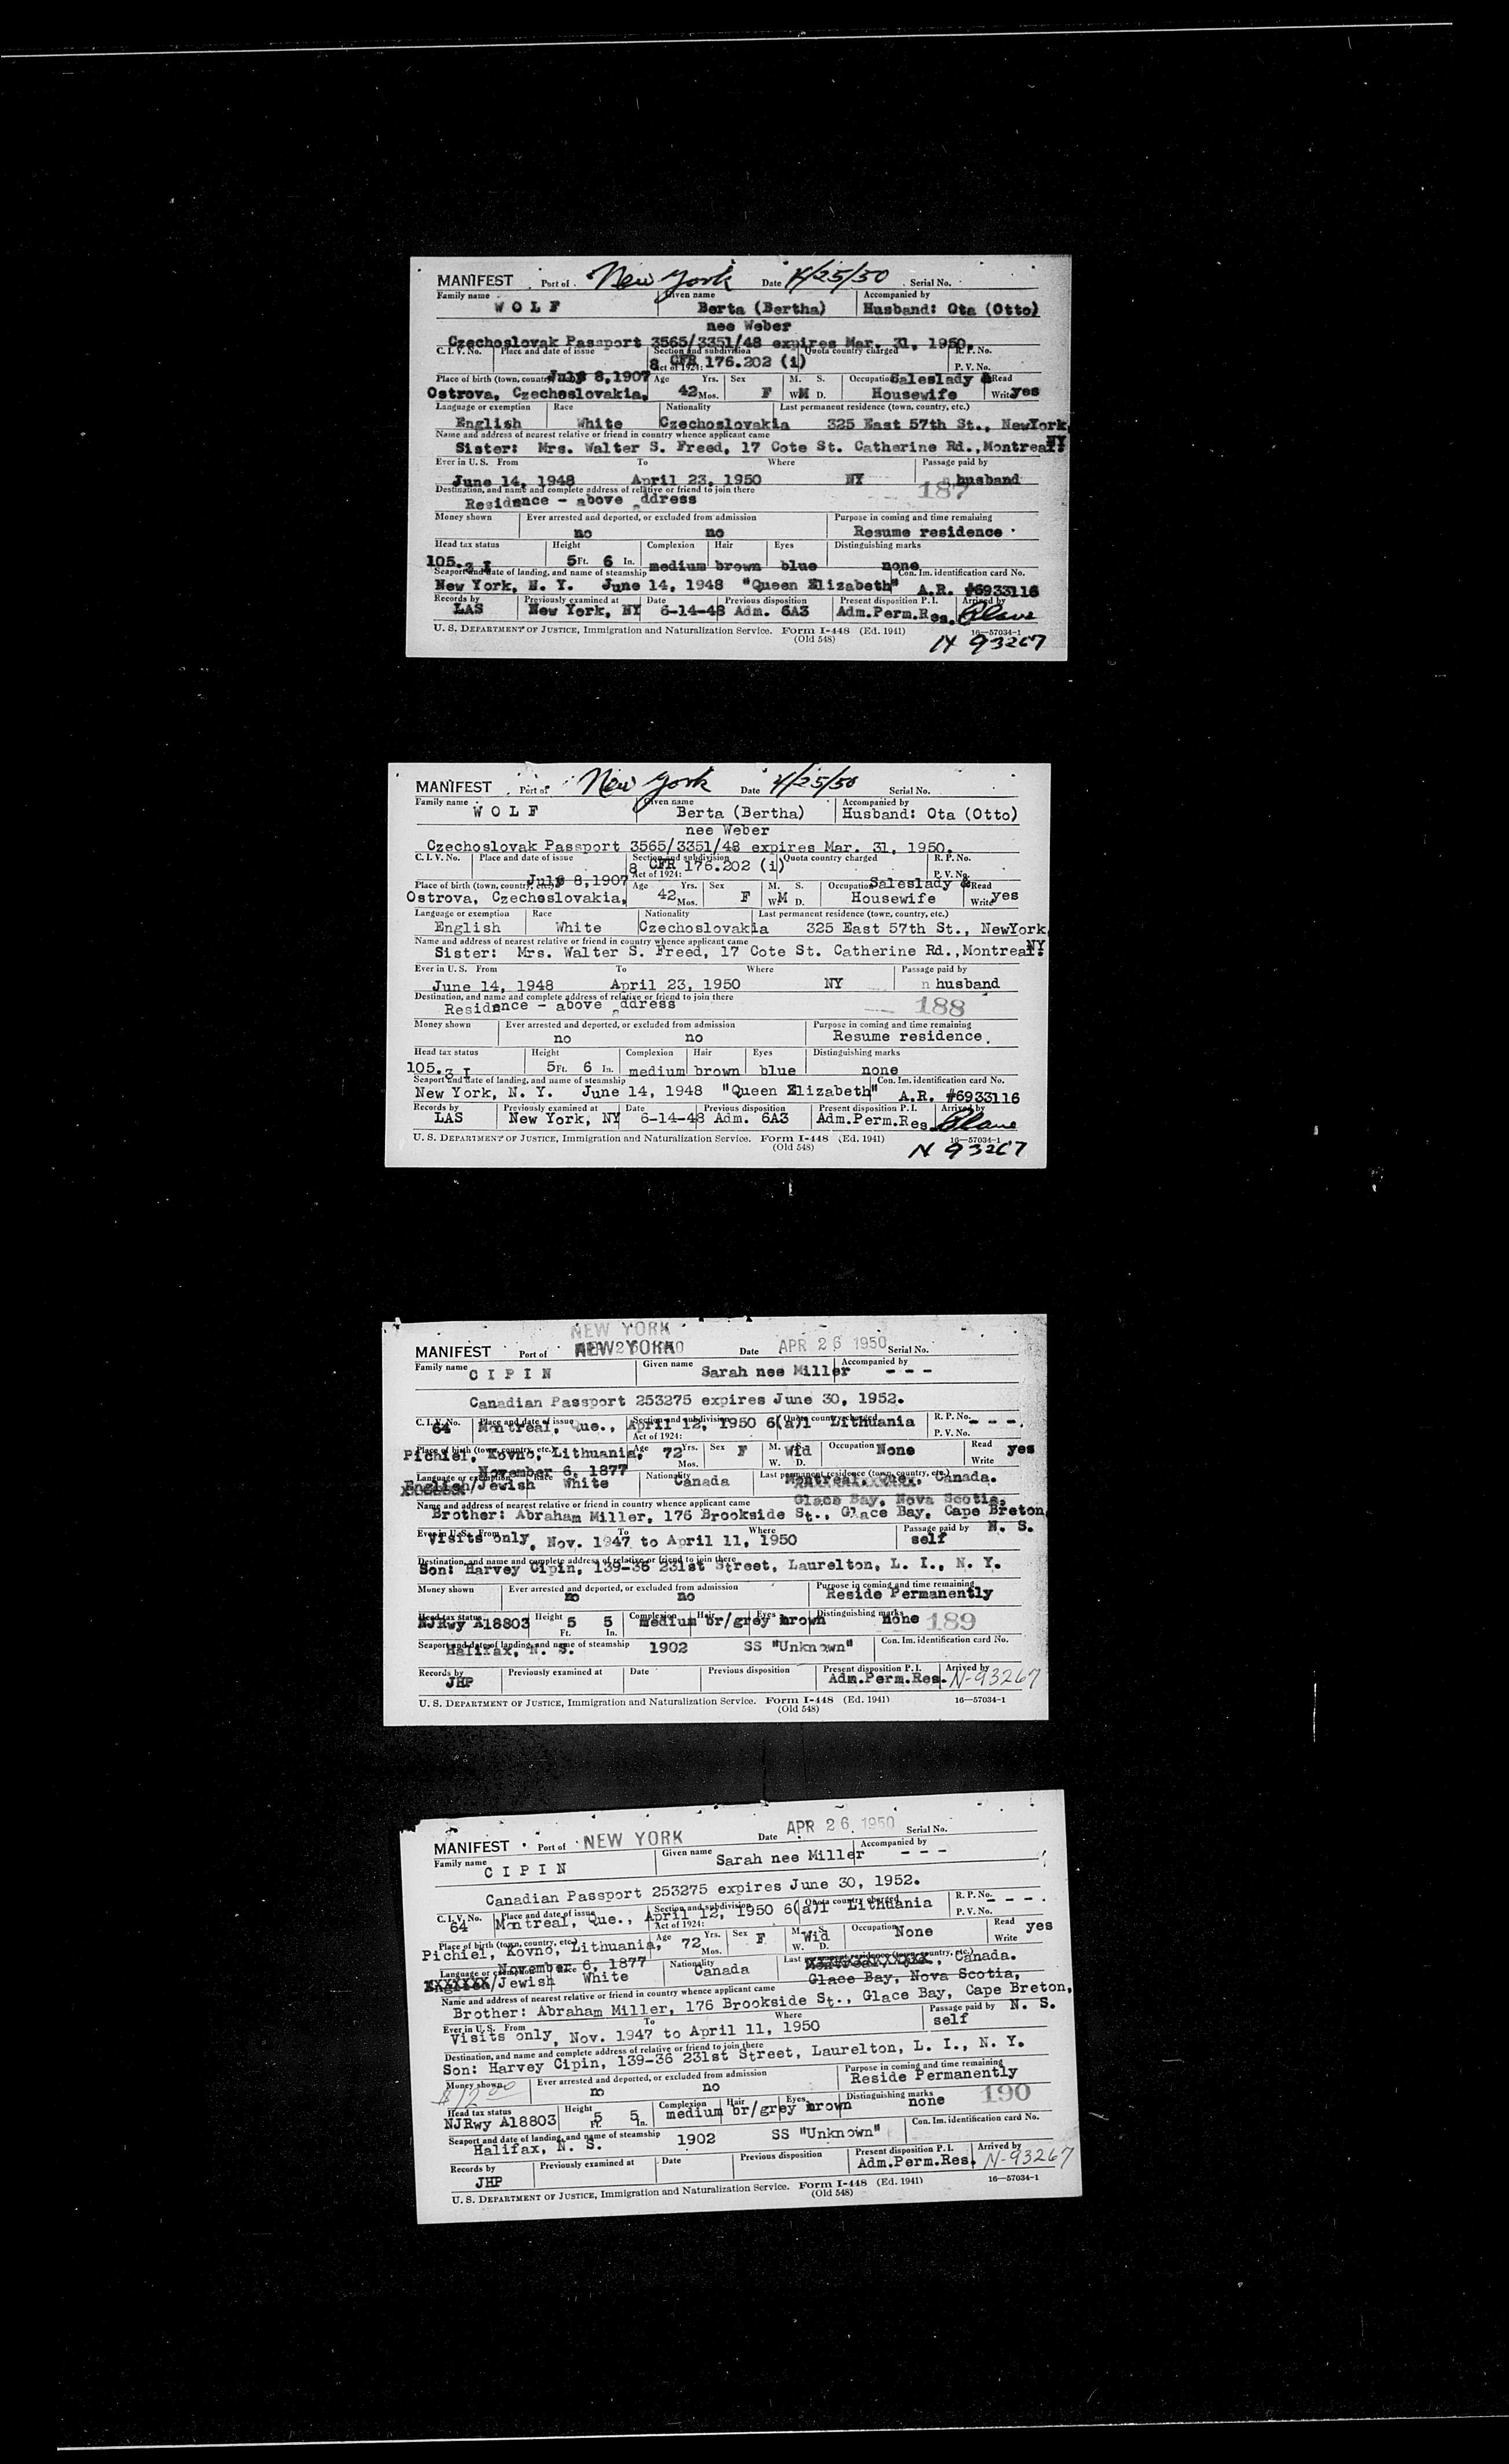 MANIFEST Port of New York Date 4/25/50 Serial No.
Family name Given name Accompanied by
W O L F Berta (Bertha) Husband: Ota (Otto)
nee Weber
Czechoslovak Passport 3565/3351/48 expires Mar. 31, 1950.
C. I. V. No. Place and date of issue Section and subdivision Quota country charged R. P. No.
Act of 1924: 8 CFR 176.202 (i) P. V. No.
Place of birth (town, country, etc.) July 8, 1907 Age Yrs. Sex M. S. Occupation Saleslady & Read
Ostrova, Czechoslovakia, 42 Mos. F W M D. Housewife Write yes
Language or exemption Race Nationality Last permanent residence (town, country, etc.)
English White Czechoslovakia 325 East 57th St., NewYork, NY
Name and address of nearest relative or friend in country whence applicant came
Sister: Mrs. Walter S. Freed, 17 Cote St. Catherine Rd., Montreal.
Ever in U. S. From To Where Passage paid by
June 14, 1948 April 23, 1950 NY husband
Destination, and name and complete address of relative or friend to join there 187
Residence - above address
Money shown Ever arrested and deported, or excluded from admission Purpose in coming and time remaining
no no Resume residence
Head tax status Height Complexion Hair Eyes Distinguishing marks
105.3 I 5 Ft. 6 In. medium brown blue none
Seaport and date of landing, and name of steamship Con. Im. identification card No.
New York, N. Y. June 14, 1948 "Queen Elizabeth" A.R. #6933116
Records by Previously examined at Date Previous disposition Present disposition P. I. Arrived by
LAS New York, NY 6-14-48 Adm. 6A3 Adm.Perm.Res.
U. S. DEPARTMENT OF JUSTICE, Immigration and Naturalization Service. Form I-448 (Ed. 1941) 16—57034-1
(Old 548) N 93267
MANIFEST Port of New York Date 4/25/50 Serial No.
Family name Given name Accompanied by
W O L F Berta (Bertha) Husband: Ota (Otto)
nee Weber
Czechoslovak Passport 3565/3351/48 expires Mar. 31, 1950.
C. I. V. No. Place and date of issue Section and subdivision Quota country charged R. P. No.
Act of 1924: 8 CFR 176.202 (i) P. V. No.
Place of birth (town, country, etc.) July 8, 1907 Age Yrs. Sex M. S. Occupation Saleslady & Read
Ostrova, Czechoslovakia, 42 Mos. F W M D. Housewife Write yes
Language or exemption Race Nationality Last permanent residence (town, country, etc.)
English White Czechoslovakia 325 East 57th St., NewYork, NY
Name and address of nearest relative or friend in country whence applicant came
Sister: Mrs. Walter S. Freed, 17 Cote St. Catherine Rd., Montreal.
Ever in U. S. From To Where Passage paid by
June 14, 1948 April 23, 1950 NY husband
Destination, and name and complete address of relative or friend to join there
Residence - above address 188
Money shown Ever arrested and deported, or excluded from admission Purpose in coming and time remaining
no no Resume residence.
Head tax status Height Complexion Hair Eyes Distinguishing marks
105.3 I 5 Ft. 6 In. medium brown blue none
Seaport and date of landing, and name of steamship Con. Im. identification card No.
New York, N. Y. June 14, 1948 "Queen Elizabeth" A.R. #6933116
Records by Previously examined at Date Previous disposition Present disposition P. I. Arrived by
LAS New York, NY 6-14-48 Adm. 6A3 Adm.Perm.Res
U. S. DEPARTMENT OF JUSTICE, Immigration and Naturalization Service. Form I-448 (Ed. 1941) 16—57034-1
(Old 548) N 93267
NEW YORK
MANIFEST Port of NEW YORK Date APR 26 1950 Serial No.
Family name Given name Accompanied by
C I P I N Sarah nee Miller - - -
Canadian Passport 253275 expires June 30, 1952.
C. I. V. No. Place and date of issue Section and subdivision Quota country charged R. P. No. - - -.
64 Montreal, Que., April 12, 1950 6(a)1 Lithuania
Act of 1924: P. V. No.
Place of birth (town, country, etc.) Age Yrs. Sex M. S. Occupation Read
Pichiel, Kovno, Lithuania, 72 Mos. F W. Wid D. None Write yes
November 6, 1877
Language or exemption Race Nationality Last permanent residence (town, country, etc.)
English/Jewish White Canada Montreal, Que., Canada.
Glace Bay, Nova Scotia,
Name and address of nearest relative or friend in country whence applicant came
Brother: Abraham Miller, 176 Brookside St., Glace Bay, Cape Breton, N. S.
Ever in U. S. From To Where Passage paid by
Visits only, Nov. 1947 to April 11, 1950 self
Destination, and name and complete address of relative or friend to join there
Son: Harvey Cipin, 139-36 231st Street, Laurelton, L. I., N. Y.
Money shown Ever arrested and deported, or excluded from admission Purpose in coming and time remaining
no no Reside Permanently
Head tax status Height Complexion Hair Eyes Distinguishing marks
NJRwy A18803 5 Ft. 5 In. medium br/grey brown none 189
Seaport and date of landing, and name of steamship Con. Im. identification card No.
Halifax, N. S. 1902 SS "Unknown"
Records by Previously examined at Date Previous disposition Present disposition P. I. Arrived by
JHP Adm.Perm.Res. N-93267
U. S. DEPARTMENT OF JUSTICE, Immigration and Naturalization Service. Form I-448 (Ed. 1941) 16—57034-1
(Old 548)
MANIFEST Port of NEW YORK Date APR 26 1950 Serial No.
Family name Given name Accompanied by
C I P I N Sarah nee Miller - - -
Canadian Passport 253275 expires June 30, 1952.
C. I. V. No. Place and date of issue Section and subdivision Quota country charged R. P. No. - - - .
64 Montreal, Que., April 12, 1950 6(a)1 Lithuania
Act of 1924: P. V. No.
Place of birth (town, country, etc.) Age Yrs. Sex M. S. Occupation Read
Pichiel, Kovno, Lithuania, 72 Mos. F W. Wid D. None Write yes
November 6, 1877
Language or exemption Race Nationality Last permanent residence (town, country, etc.)
English/Jewish White Canada Montreal, Que., Canada.
Glace Bay, Nova Scotia,
Name and address of nearest relative or friend in country whence applicant came
Brother: Abraham Miller, 176 Brookside St., Glace Bay, Cape Breton, N. S.
Ever in U. S. From To Where Passage paid by
Visits only, Nov. 1947 to April 11, 1950 self
Destination, and name and complete address of relative or friend to join there
Son: Harvey Cipin, 139-36 231st Street, Laurelton, L. I., N. Y.
Money shown Ever arrested and deported, or excluded from admission Purpose in coming and time remaining
no no Reside Permanently
Head tax status Height Complexion Hair Eyes Distinguishing marks 190
NJRwy A18803 5 Ft. 5 In. medium br/grey brown none
Seaport and date of landing, and name of steamship Con. Im. identification card No.
Halifax, N. S. 1902 SS "Unknown"
Records by Previously examined at Date Previous disposition Present disposition P. I. Arrived by
JHP Adm.Perm.Res. N-93267
U. S. DEPARTMENT OF JUSTICE, Immigration and Naturalization Service. Form I-448 (Ed. 1941) 16—57034-1
(Old 548)